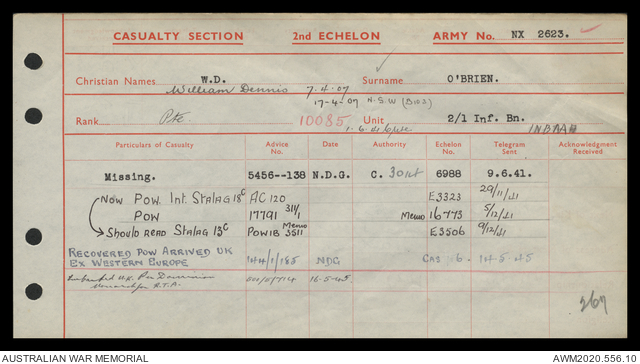 CASUALTY SECTION 2nd ECHELON ARMY No. NX 2623.
Christian Names W.D. Surname O'BRIEN.
William Dennis 7.4.07
17-4-07 N.S.W (B103)
Rank Pte. 10085 Unit 2/1 Inf. Bn.
Particulars of Casualty Advice No. Date Authority Echelon No. Telegram Sent Acknowledgment Received
Missing. 5456--138 N.D.G. C. 6988 9.6.41.
Now POW. Int. Stalag 18C AC 120 E3323 29/11/41
POW 17791 311/1 Memo 16773 5/12/41
Should read Stalag 13C POW1B Memo 3511 E3506 9/12/41
RECOVERED POW ARRIVED UK 144/1/185 NDG CAS 6. 14.5.45
EX WESTERN EUROPE
U.K. Per Dominion 16-5-45
R.T.A.
267
AUSTRALIAN WAR MEMORIAL AWM2020.556.10